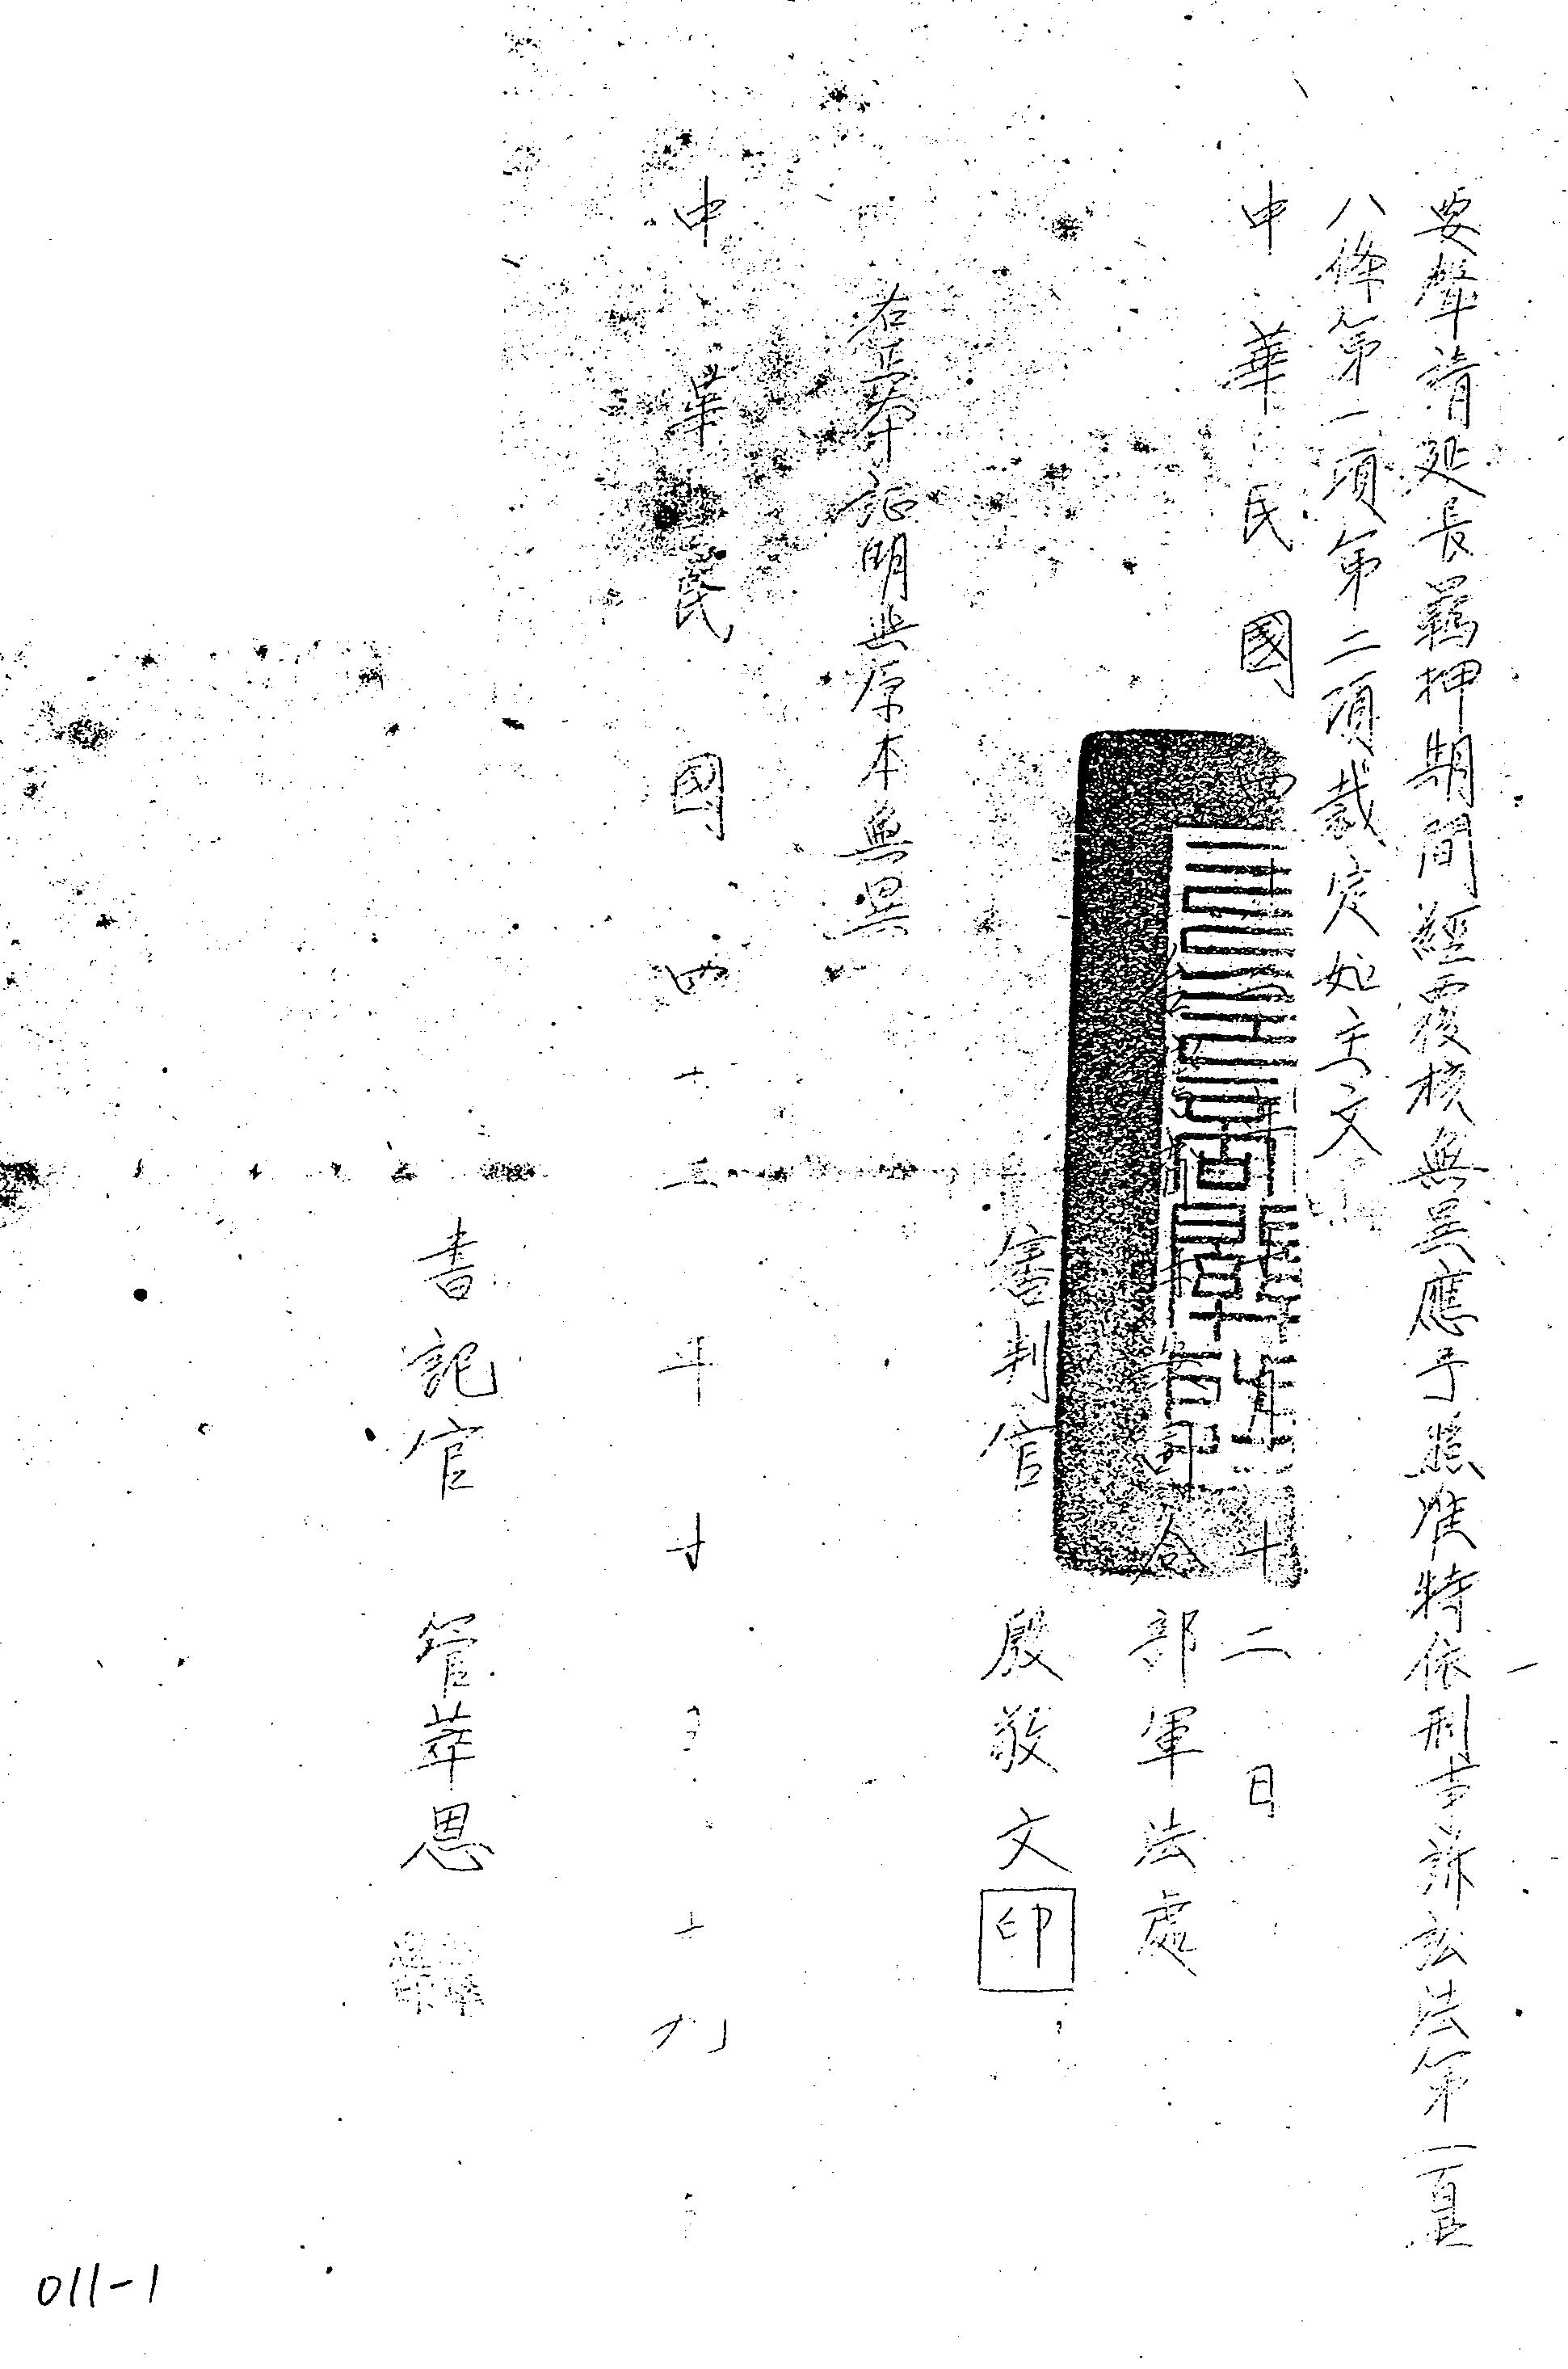 要聲請延長羈押期間經覆核無異應予照准特依刑事訴訟法第一百零
八條第一項第二項裁定如主文
中華民國四十年十二日
安司令部軍法處
審判官 殷敬文 印
右正本証明与原本無異
中華民國四十三年十九
書記官 管萃恩
011-1